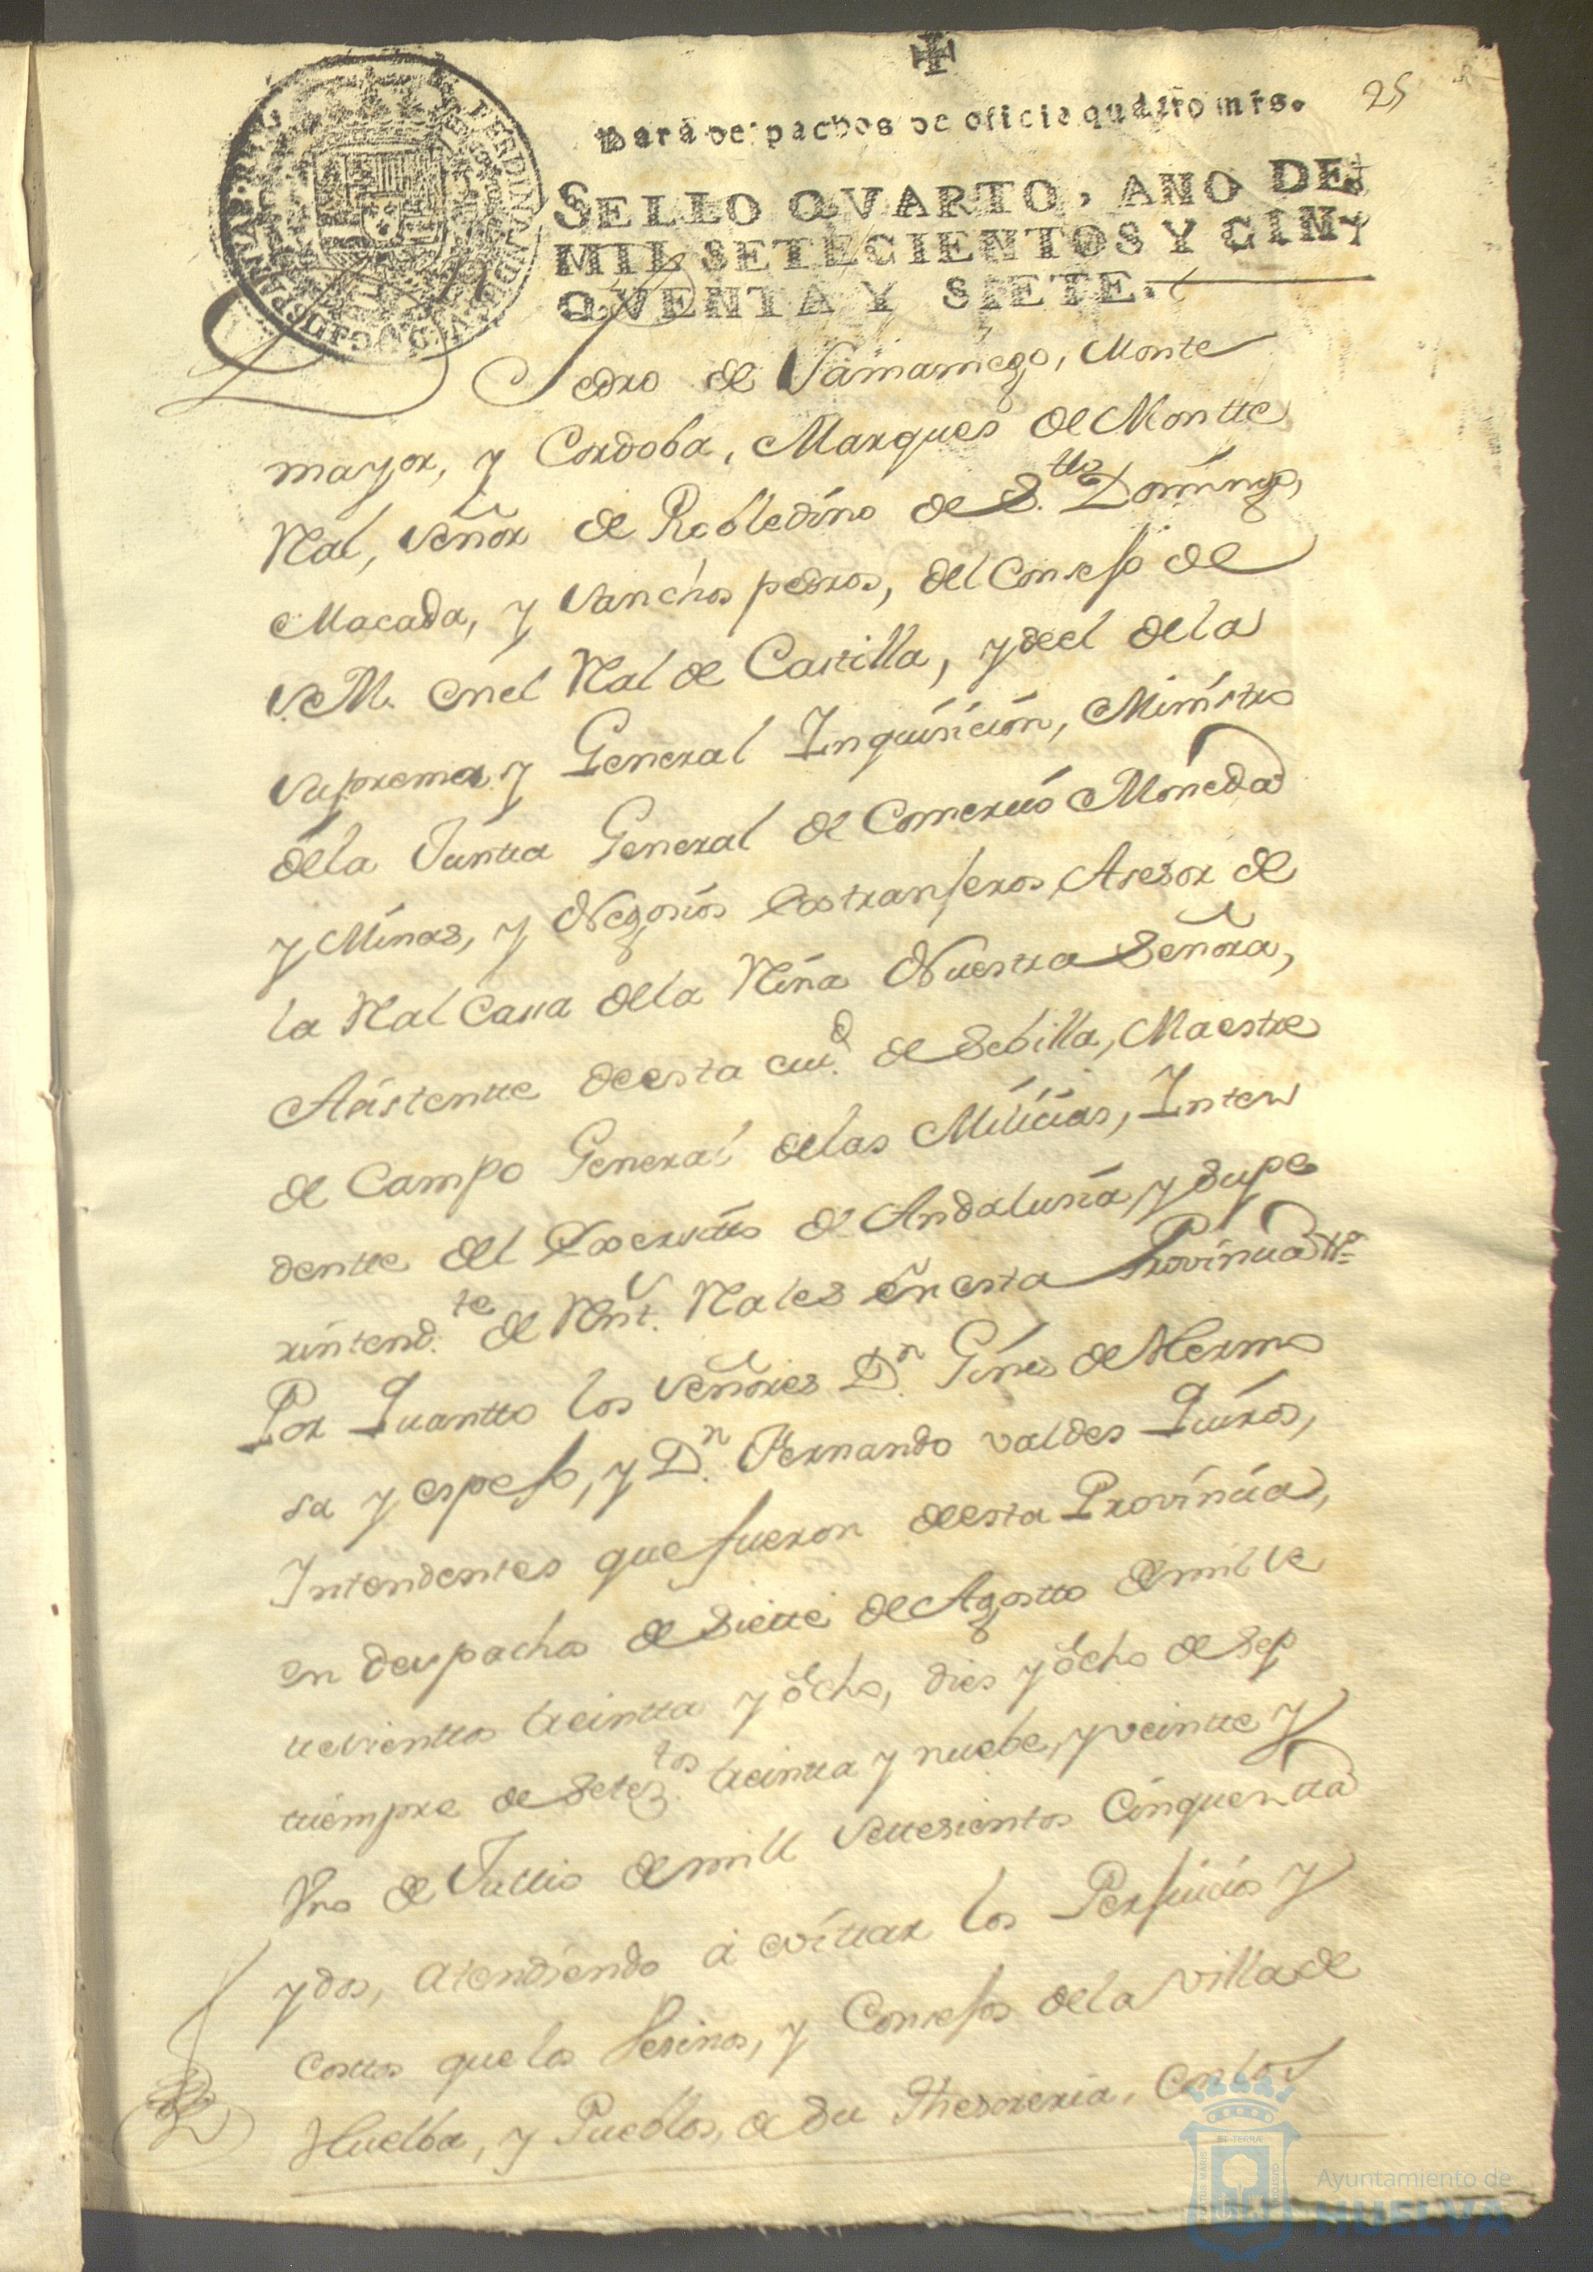 25
Para despachos de oficio quatro mrs.
SELLO QVARTO, AÑO DE
MIL SETECIENTOS Y CIN-
QVENTA Y SIETE.
Pedro de Samaniego, Monte
mayor, y Cordoba, Marques de Montte
Ral, Señor de Robledino de S.tto Domingo,
Macada, y Sanchos pedros, del Consejo de
S. M. en el Ral de Castilla, y de el de la
Suprema y General Inquisicion, Ministro
de la Juntta General de Comercio Moneda
y Minas, y Negosios Extranjeros, Asesor de
la Ral Casa de la Reina Nuestra Señora,
Asistentte de esta ciu.d de Sebilla, Maestre
de Campo General de las Milicias, Inten
dentte del Exercitto de Andalusia y Supe
rintend.te de Rent. Rales en esta Provincia &.
Por Quantto los Señores D.n Gines de Hermo
sa y espejo, y D.n Fernando valdes Quiros,
Intendentes que fueron de esta Provincia,
en despachos de Siette de Agostto de mil se
ttesienttos treintta y ocho, dies y ocho de Sep
ttiempre de Setez.tos treintta y nuebe, y veintte y
Vno de Jullio de mill Settesientos Cinquentta
y dos, atendiendo a evittar los Perjuicios y
costtos que los Vesinos, y Consejos de la Villa de
Huelba, y Pueblos de su Thesoreria, con los
PORTUS MARIS ET TERRÆ CUSTODIA
Ayuntamiento de
HUELVA